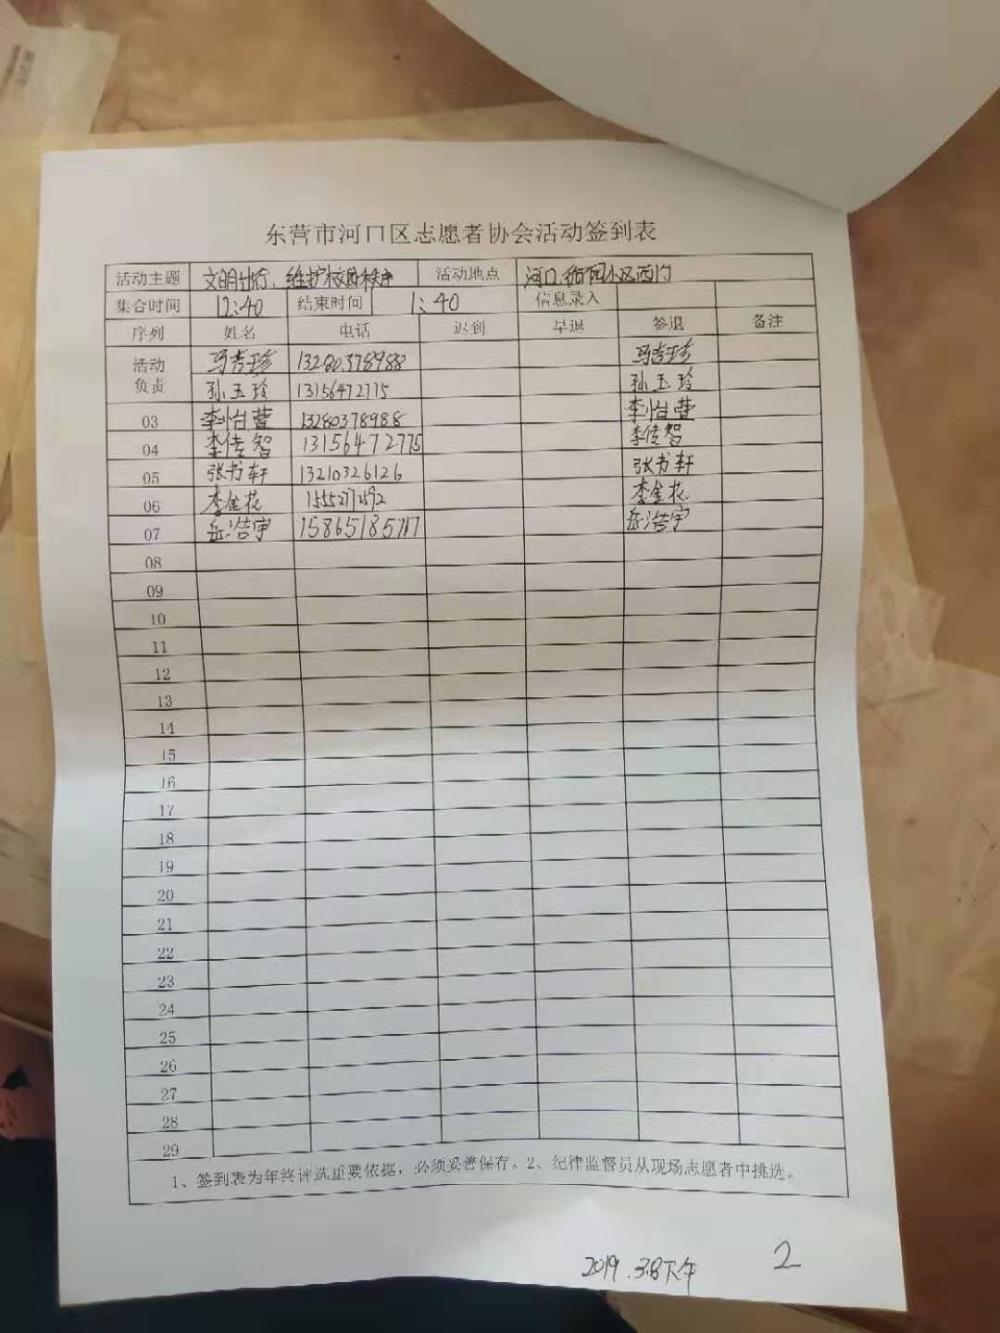 东营市河口区志愿者协会活动签到表
活动主题 文明出行、维护校园秩序 活动地点 河口 小区西门
集合时间 12:40 结束时间 1:40 信息录入
序列 姓名 电话 迟到 早退 签退 备注
活动负责 马吉珍 13280378988 马吉珍
孙玉玲 13156472775 孙玉玲
03 李怡萱 13280378988 李怡萱
04 李传智 13156472775 李传智
05 张书轩 13210326126 张书轩
06 李金花 李金花
07 岳浩宇 岳浩宇
08
09
10
11
12
13
14
15
16
17
18
19
20
21
22
23
24
25
26
27
28
29
1、签到表为年终评选重要依据，必须妥善保存。2、纪律监督员从现场志愿者中挑选。
2019.3.8下午 2